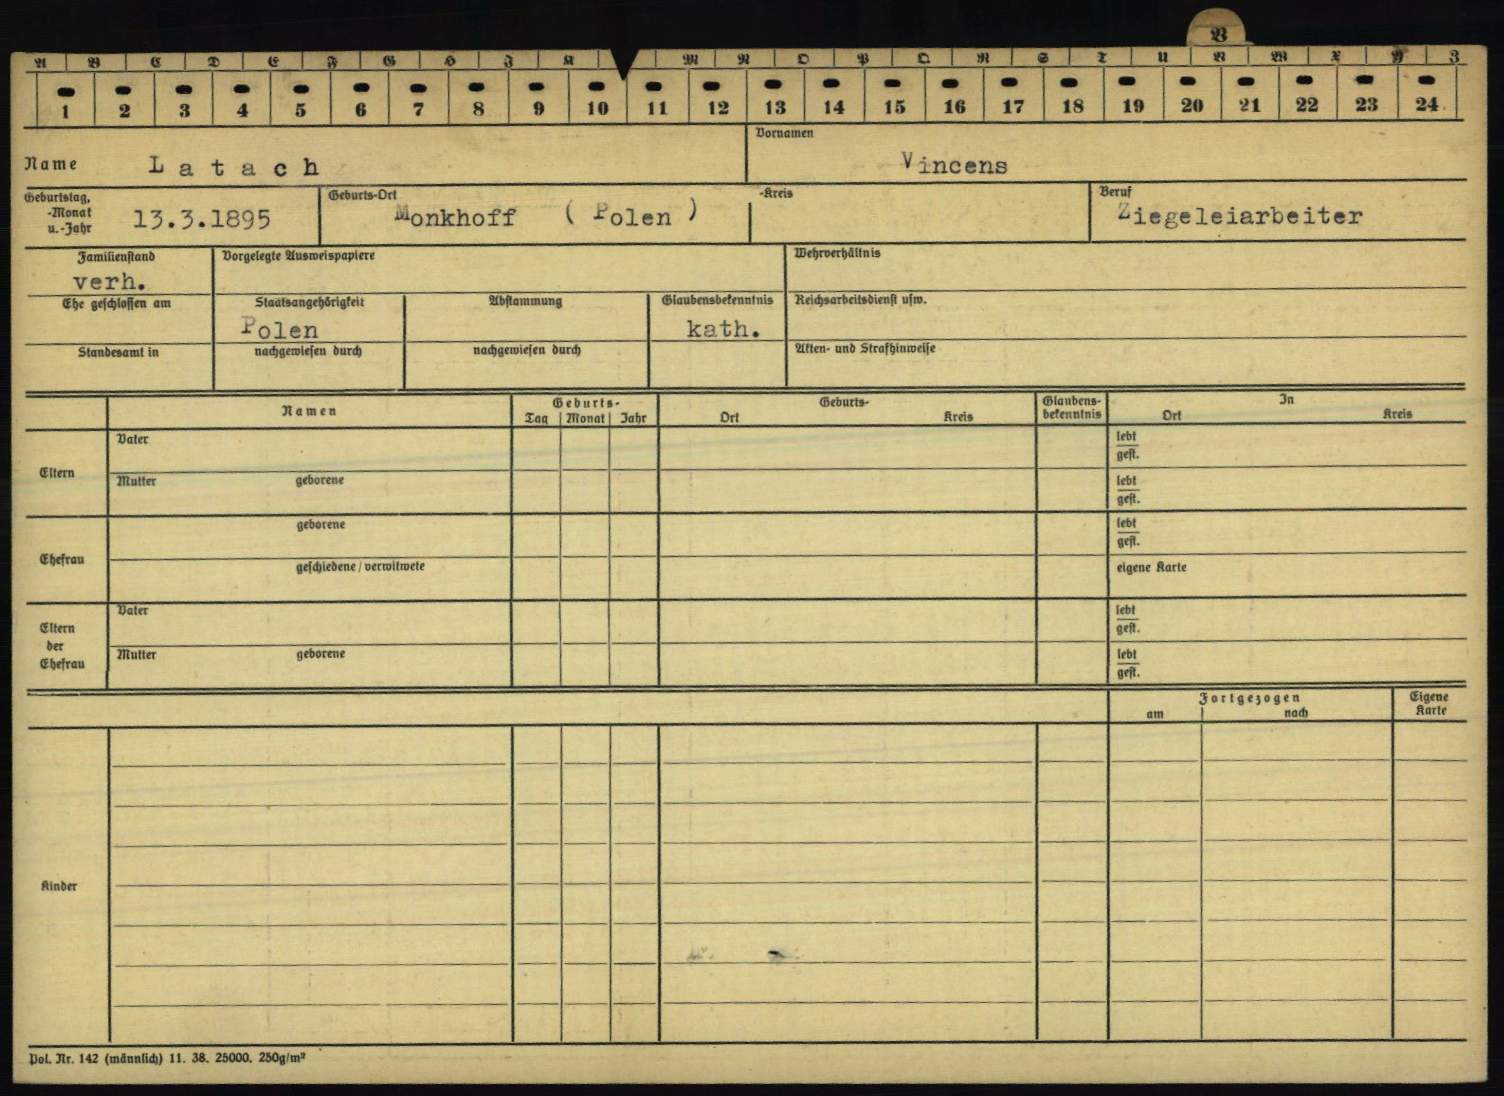 B
A B C D E F G H J K M N O P Q R S T U V W X Y Z
1 2 3 4 5 6 7 8 9 10 11 12 13 14 15 16 17 18 19 20 21 22 23 24
Name Latach Vornamen Vincens
Geburtstag, -Monat u.-Jahr 13.3.1895 Geburts-Ort Monkhoff (Polen) -Kreis Beruf Ziegeleiarbeiter
Familienstand verh. Vorgelegte Ausweispapiere Wehrverhältnis
Ehe geschlossen am Staatsangehörigkeit Polen Abstammung Glaubensbekenntnis kath. Reichsarbeitsdienst usw.
Standesamt in nachgewiesen durch nachgewiesen durch Akten- und Strafhinweise
Namen Geburts- Geburts- Glaubens- In
Tag Monat Jahr Ort Kreis bekenntnis Ort Kreis
Eltern
Vater lebt
gest.
Mutter geborene lebt
gest.
Ehefrau
geborene lebt
gest.
geschiedene / verwitwete eigene Karte
Eltern
der
Ehefrau
Vater lebt
gest.
Mutter geborene lebt
gest.
Fortgezogen Eigene
am nach Karte
Kinder
Pol. Nr. 142 (männlich) 11. 38. 25000. 250g/m²